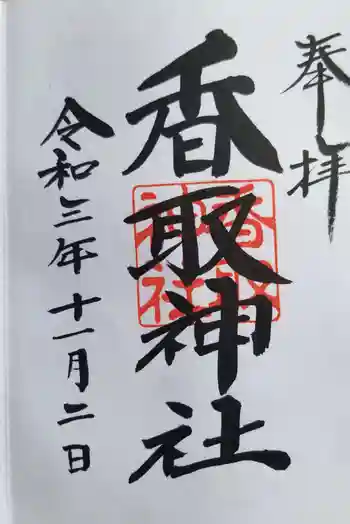 奉拝
香取神社
香取
神社
令和三年十一月二日